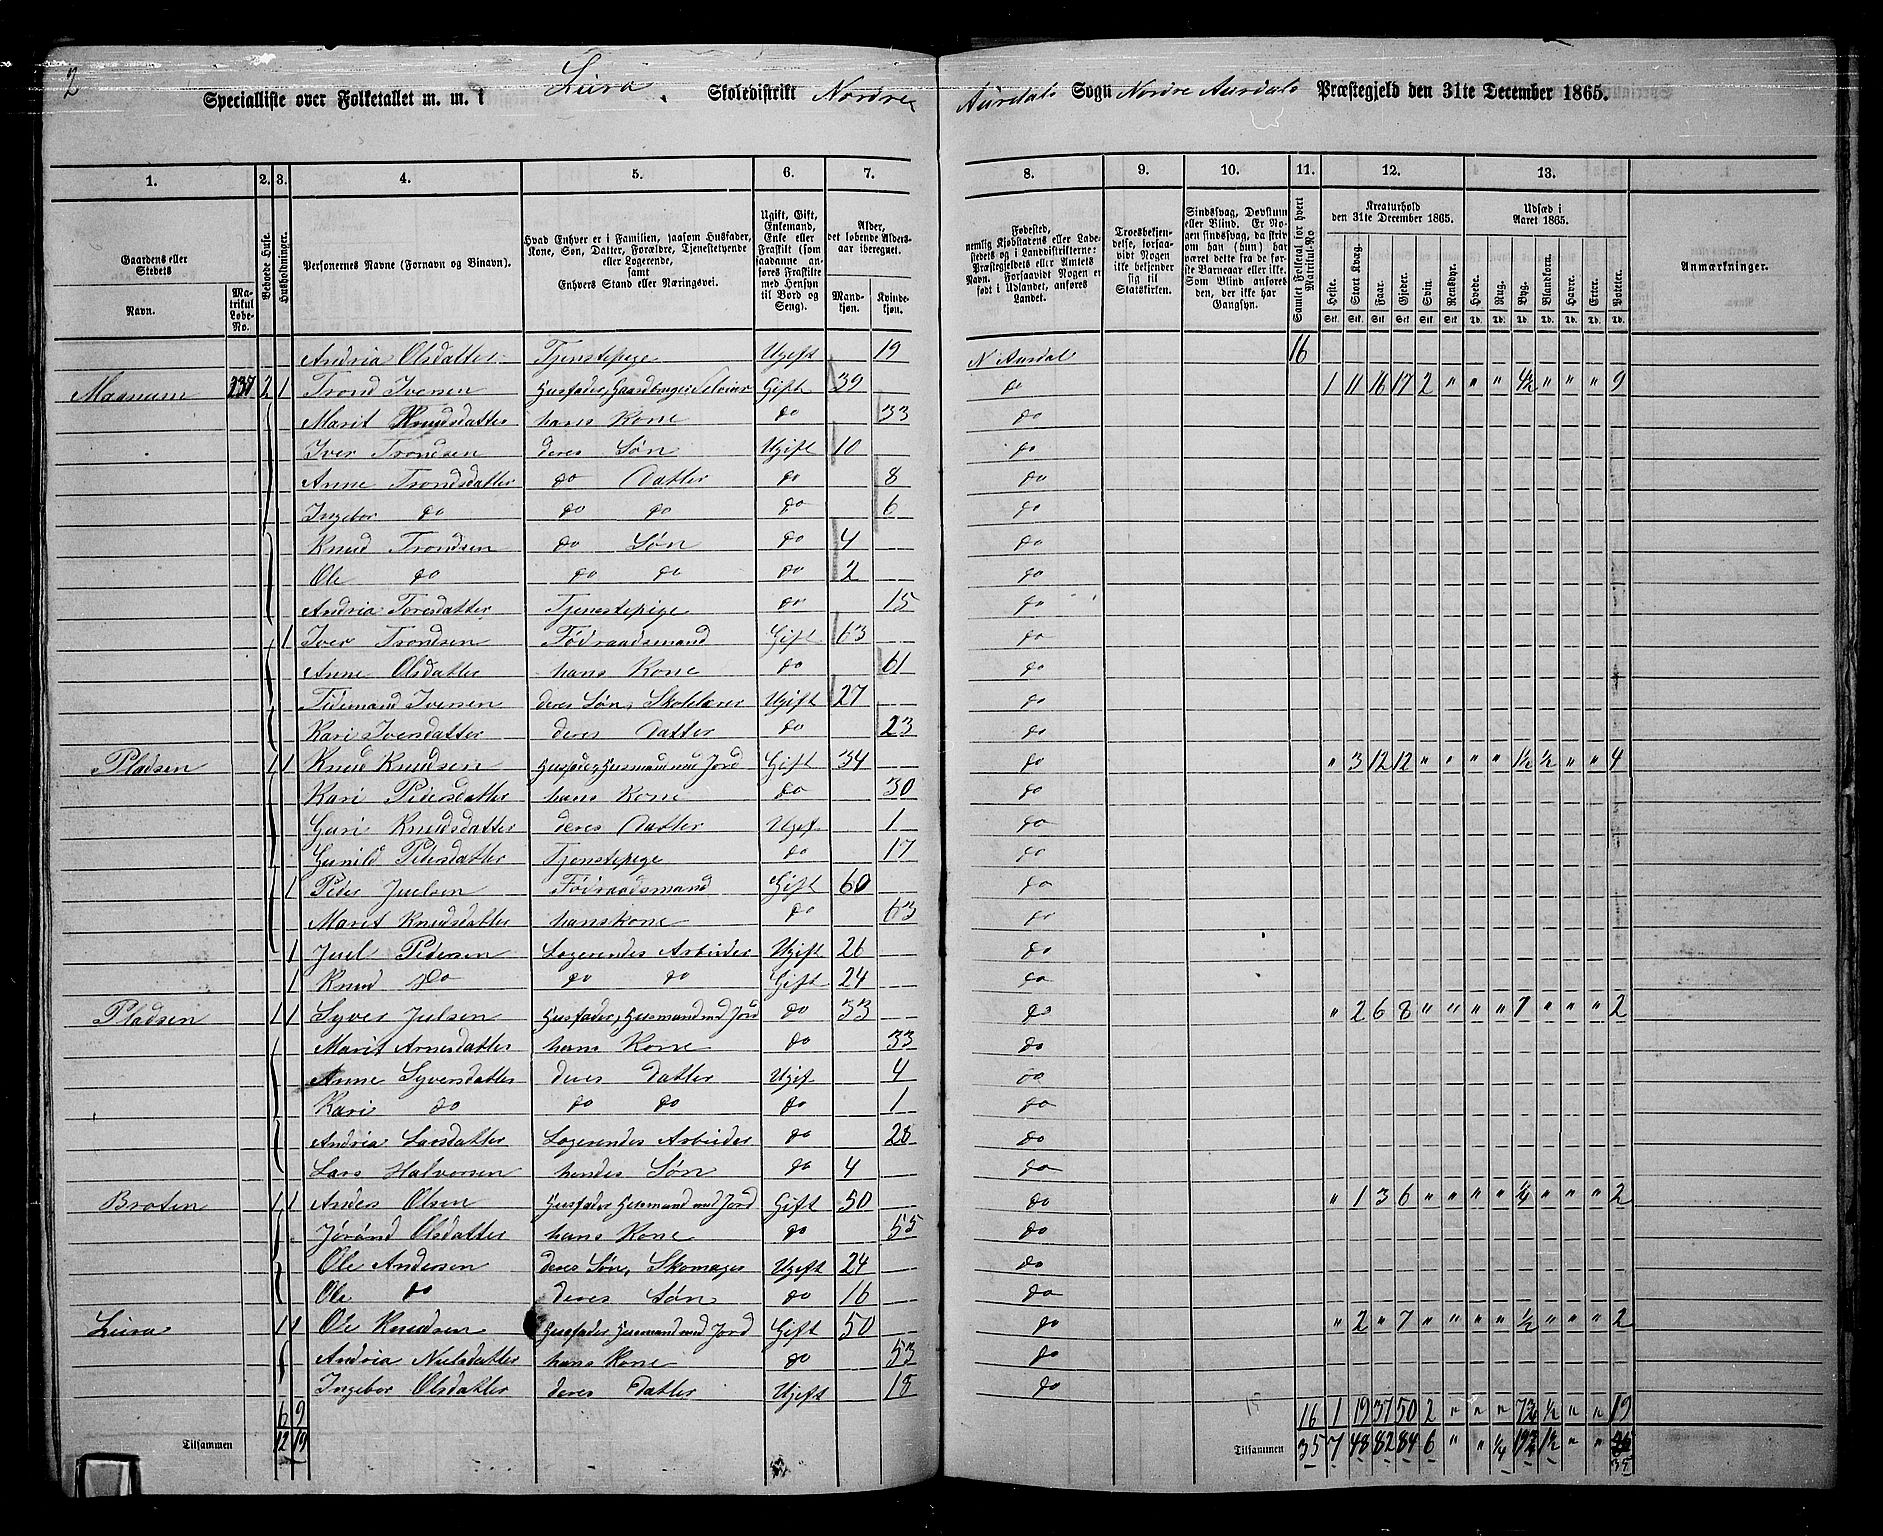 2
Specialliste over Folketallet m. m. i Lura Skoledistrikt Nordre Aurdals Sogn Nordre Aurdals Præstegjeld den 31te December 1865.
1. 2. 3. 4. 5. 6. 7. 8. 9. 10. 11. 12. 13.
Gaardens eller Stedets
Navn.
Matrikul Løbe-No.
Beboede Huse.
Husholdninger.
Personernes Navne (Fornavn og Binavn).
Hvad Enhver er i Familien, saasom Husfader, Kone, Søn, Datter, Forældre, Tjenestetyende eller Logerende,
samt
Enhvers Stand eller Næringsvei.
Ugift, Gift, Enkemand, Enke eller Fraskilt (som saadanne anføres Fraskilte med Hensyn til Bord og Seng).
Alder, det løbende Aldersaar iberegnet.
Mandkjøn. Kvindekjøn.
Fødested, nemlig Kjøbstadens eller Ladestedets eller i Landdistrikterne: Præstegjeldets eller Amtets Navn. Forsaavidt Nogen er født i Udlandet, anføres Landet.
Troesbekjendelse, forsaavidt Nogen ikke bekjender sig til Statskirken.
Sindssvag, Døvstum eller Blind. Er Nogen sindssvag, da skriv om han (hun) har været det fra de første Barneaar eller ikke. Som Blind anføres den, der ikke har Gangsyn.
Samlet Folketal for hvert Matrikul-No
Kreaturhold den 31te December 1865.
Heste. Stort Kvæg. Faar. Gjeder. Svin. Rensdyr.
Udsæd i Aaret 1865.
Hvede. Rug. Byg. Blandkorn. Havre. Erter. Poteter.
Anmærkninger.
Andria Olsdatter Tjenstepige Ugift 19 N Aurdal 16
Magnum 237 2 1 Trond Iversen Husfader, Gaardbruger Selveier Gift 39 do 1 11 16 17 2 " " " 4½ " " " 9
Marit Knudsdatter hans Kone do 33 do
Iver Trondsen deres Søn Ugift 10 do
Anne Trondsdatter do Datter do 8 do
Ingebor do do do do 6 do
Knud Trondsen do Søn do 4 do
Ole do do do do 2 do
Andria Toresdatter Tjenstepige do 15 do
1 Iver Trondsen Födraadsmand Gift 63 do
Anne Olsdatter hans Kone do 61 do
Tidemand Iversen deres Søn, Skolelærer Ugift 27 do
Kari Iversdatter deres Datter do 23 do
Pladsen 1 1 Knud Knudsen Husfader, Husmand med Jord Gift 34 do " 3 12 12 " " " " 1½ ½ " " 4
Kari Pedersdatter hans Kone do 30 do
Guri Knudsdatter deres Datter Ugif 1 do
Gunild Pedersdatter Tjenstepige do 17 do
1 Peder Juelsen Födraadsmand Gift 60 do
Marit Knudsdatter hans kone do 63 do
1 Juel Pedersen Logerendes Arbeider Ugift 26 do
1 Knud Do do do Gift 24 do
Pladsen 1 1 Syver Julsen Husfader, Husmand med Jord do 33 do " 2 6 8 " " " " 1 " " " 2
Marit Arnesdatter hans Kone do 33 do
Anne Syversdatter deres Datter Ugif 4 do
Kari do do do do 1 do
Andria Larsdatter Logerendes Arbeider do 28 do
Lars Halvorsen hendes Søn do 4 do
Broten 1 1 Anders Olsen Husfader Husmand med Jord Gift 50 do " 1 3 6 " " " " ¼ " " " 2
Jørånd Olsdatter hans Kone do 55 do
Ole Andersen deres Søn, Skomager Ugift 24 do
Ole do deres Søn do 16 do
Lura 1 1 Ole Knudsen Husfader Husmand med Jord Gift 50 do " 2 " 7 " " " " ½ " " " 2
Andria Nielsdatter hans Kone do 53 do
Ingebor Olsdatter deres Datter Ugift 18 do
6 9 15 16 1 19 37 50 2 " " " 7¾ ½ " " 19
Tilsammen 12 19 Tilsammen 35 7 48 82 84 6 " " ¼ 19¾ 1½ " " 35